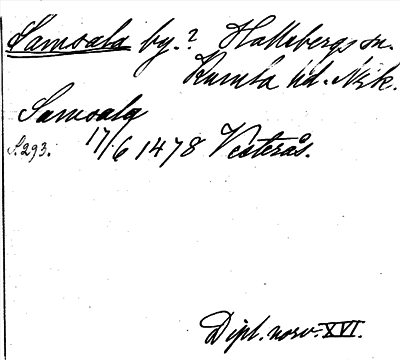 Samsala by.? Hallsbergs sn.
Kumla hd. Nrk.
Samsala
S. 293. 17/6 1478 Vesterås.
Dipl. norv. XVI.